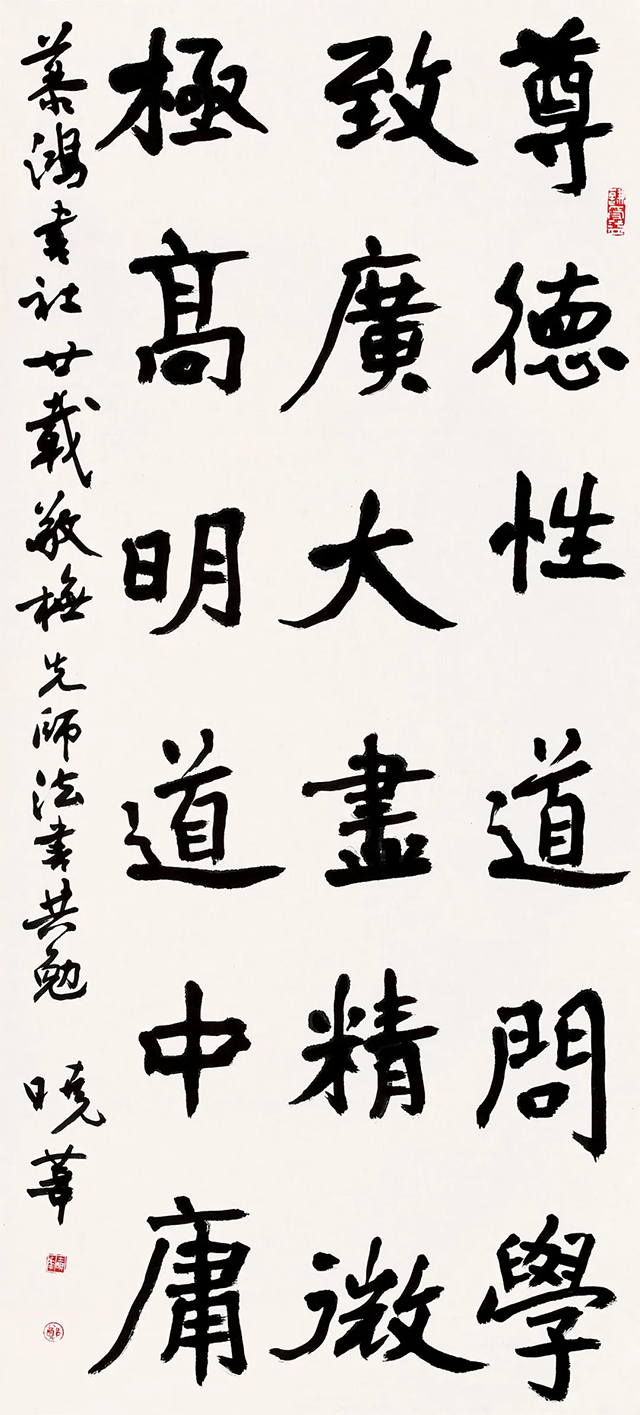 尊德性道問學
致廣大盡精微
極高明道中庸
慕鴻書社廿載敬橅先師法書共勉
曉華